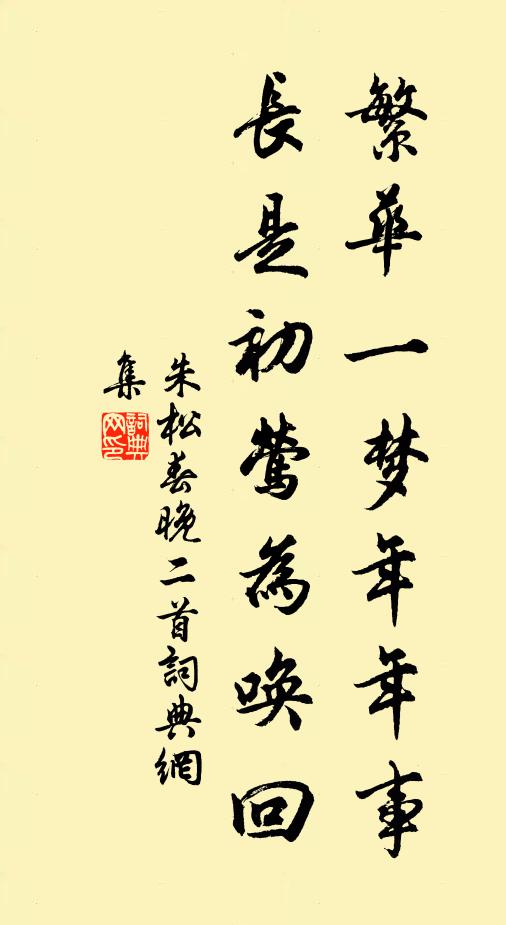 繁華一梦年年事
長是初莺為唤回
朱松春晚二首詞典網
集
詞典网印